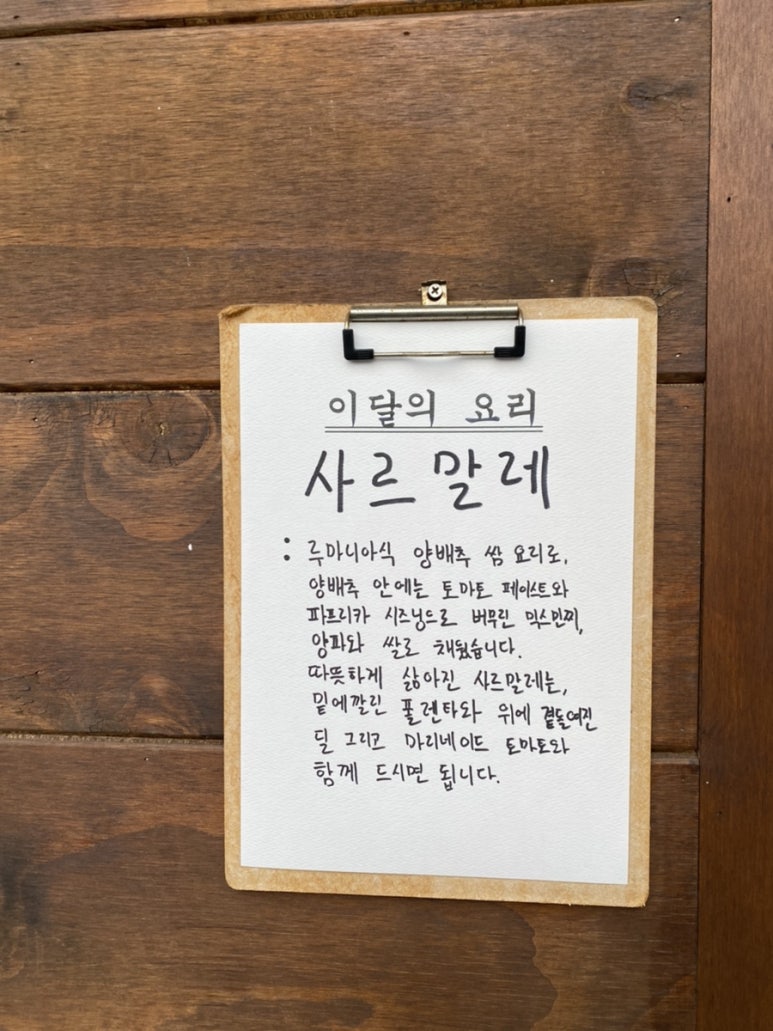 이달의 요리
사르말레
: 루마니아식 양배추 쌈 요리로,
양배추 안에는 토마토 페이스트와
파프리카 시즈닝으로 버무린 믹스민찌,
양파와 쌀로 채웠습니다.
따뜻하게 삶아진 사르말레는,
밑에깔린 폴렌타와 위에 곁들여진
딜 그리고 마리네이드 토마토와
함께 드시면 됩니다.